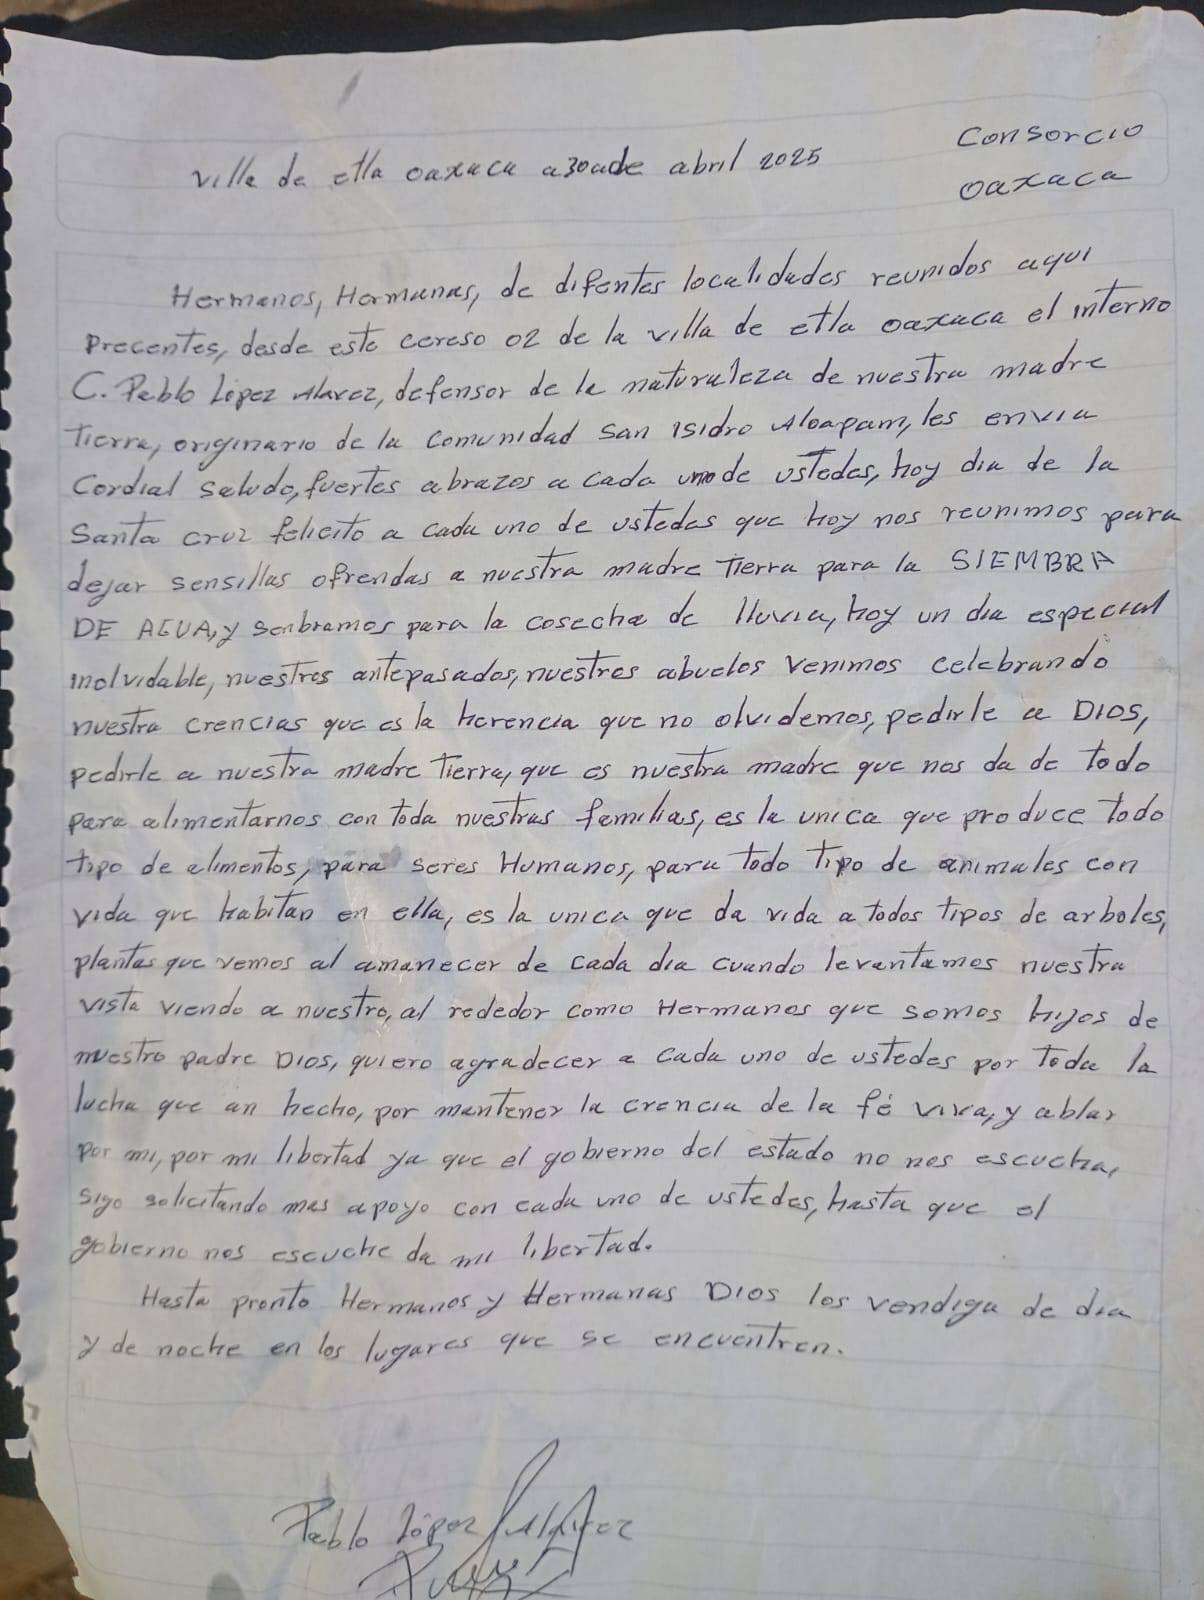 Consorcio
villa de etla oaxaca a 30 de abril 2025
oaxaca
Hermanos, Hermanas, de difentes localidades reunidos aqui
precentes, desde este cereso 02 de la villa de etla oaxaca el interno
C. Pablo López Alavez, defensor de la naturaleza de nuestra madre
Tierra, originario de la comunidad San Isidro Aloapam, les envia
Cordial saludo, fuertes abrazos a cada uno de ustedes, hoy dia de la
Santa cruz felicito a cada uno de ustedes que hoy nos reunimos para
dejar sensillas ofrendas a nuestra madre Tierra para la SIEMBRA
DE AGUA, y senbramos para la cosecha de lluvia, hoy un dia especial
inolvidable, nuestros antepasados, nuestros abuelos venimos celebrando
nuestra crencias que es la herencia que no olvidemos, pedirle a DIOS,
pedirle a nuestra madre Tierra, que es nuestra madre que nos da de todo
para alimentarnos con toda nuestras familias, es la unica que produce todo
tipo de alimentos, para seres Humanos, para todo tipo de animales con
vida que habitan en ella, es la unica que da vida a todos tipos de arboles,
plantas que vemos al amanecer de cada dia cuando levantamos nuestra
vista viendo a nuestro, al rededor como Hermanos que somos hijos de
nuestro padre DIOS, quiero agradecer a cada uno de ustedes por toda la
lucha que an hecho, por mantener la crencia de la fé viva, y ablar
por mi, por mi libertad ya que el gobierno del estado no nos escucha,
sigo solicitando mas apoyo con cada uno de ustedes, hasta que el
gobierno nos escuche da mi libertad.
Hasta pronto Hermanos y Hermanas DIOS los vendiga de dia
y de noche en los lugares que se encuentren.
Pablo López Alavez